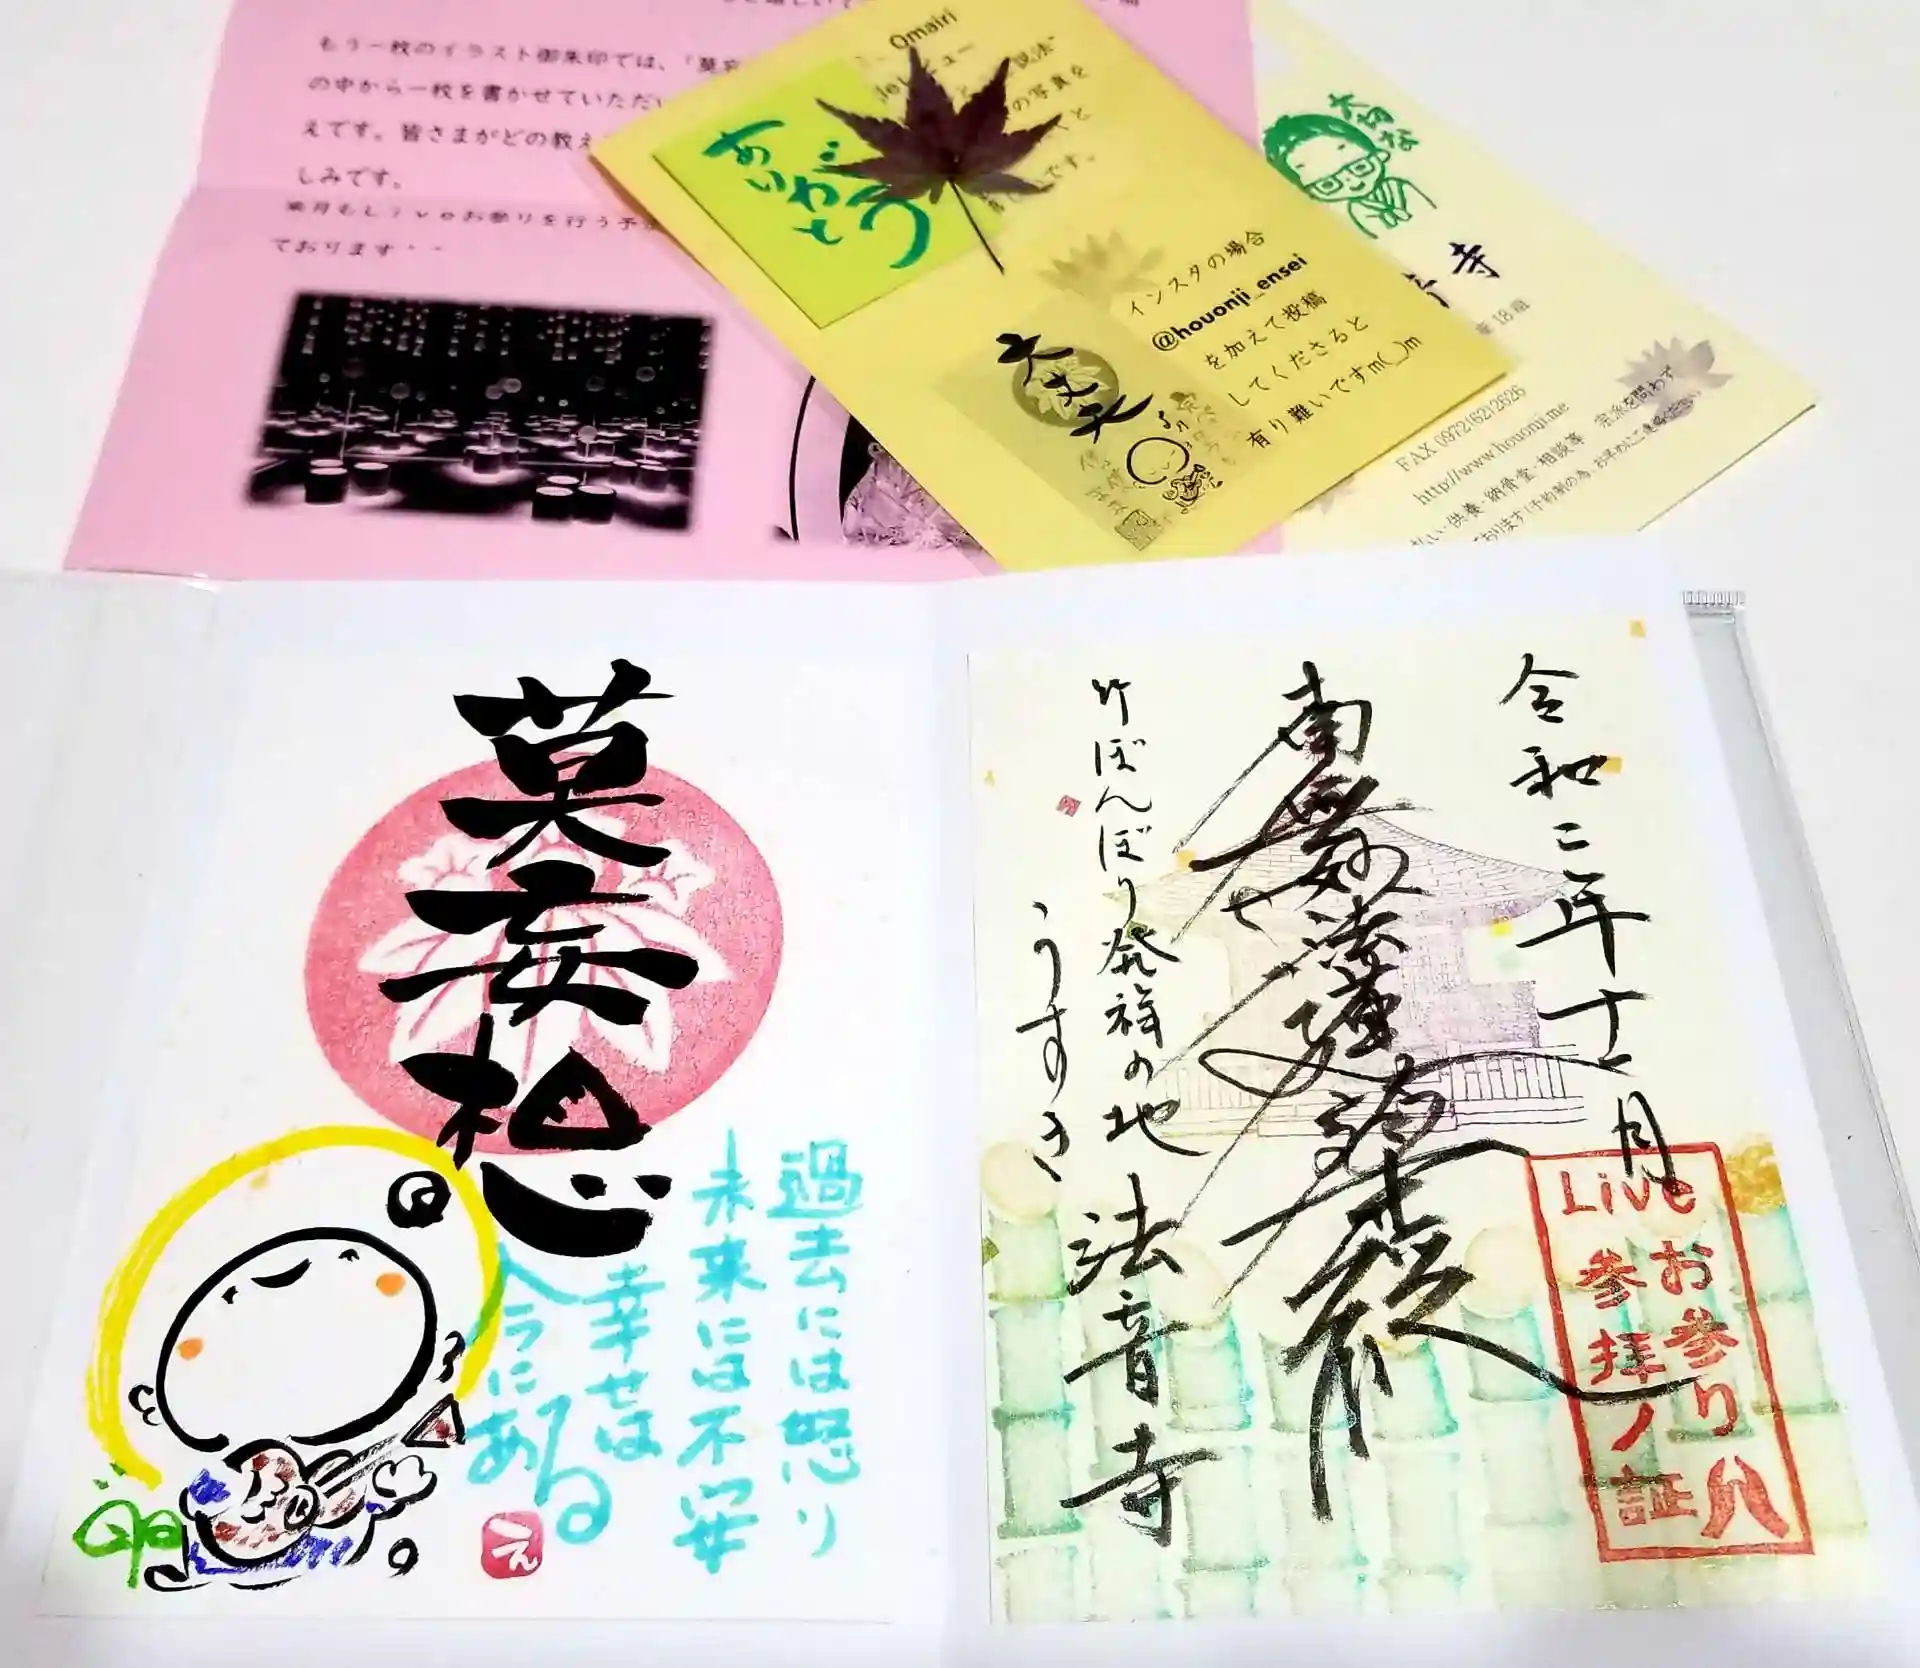 もう一枚のイラスト御朱印では、「莫妄
の中から一枚を書かせていただい
えです。皆さまがどの教え
しみです。
来月もLiveお参りを行う予定
ております・・
Omairi
ありがとう
インスタの場合
@houonji_ensei
を加えて投稿
してくださると
有り難いですm(_)m
大丈夫
寺
FAX 0972(62)2626
http://www.houonji.me
供養・納骨堂・相談等 宗派を問わず
莫妄想
過去には怒り
未来には不安
幸せは
今ここにある
え
令和二年十一月
南無妙法蓮華経
竹ぼんぼり発祥の地
うすき
法音寺
Liveお参り八
参拝ノ証